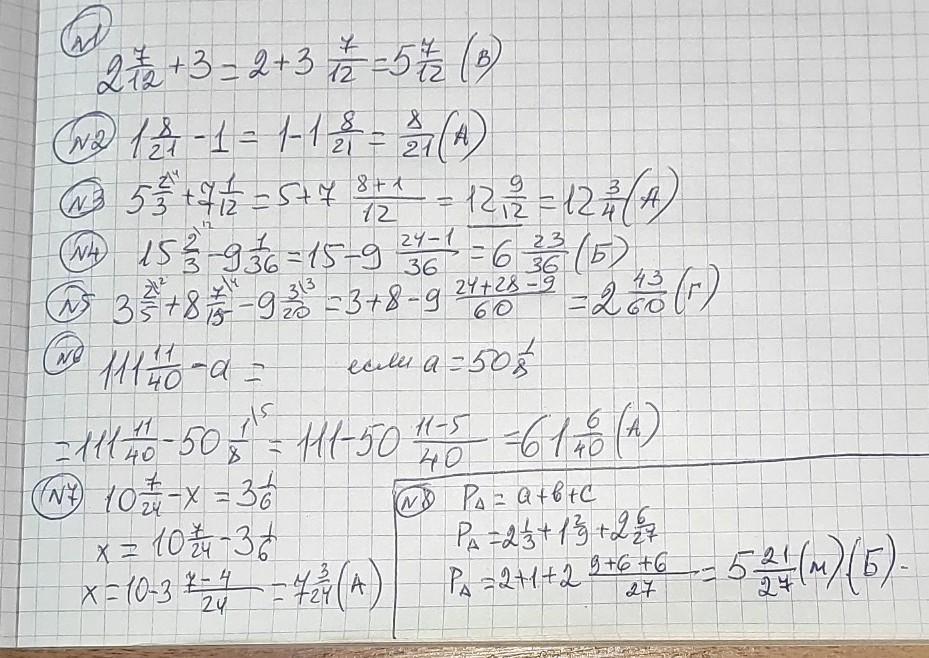 №1
2 7/12 + 3 = 2 + 3 7/12 = 5 7/12 (В)
№2 1 8/21 - 1 = 1 - 1 8/21 = 8/21 (А)
№3 5 2\4/3 + 7 1/12 = 5 + 7 (8+1)/12 = 12 9/12 = 12 3/4 (А)
№4 15 2\12/3 - 9 1/36 = 15 - 9 (24-1)/36 = 6 23/36 (Б)
№5 3 2\12/5 + 8 7\4/15 - 9 3\3/20 = 3 + 8 - 9 (24+28-9)/60 = 2 43/60 (Г)
№6 111 11/40 - а = если а = 50 1/8
= 111 11/40 - 50 1\5/8 = 111 - 50 (11-5)/40 = 61 6/40 (А)
№7 10 7/24 - х = 3 1/6
х = 10 7/24 - 3 1/6
х = 10 - 3 (7-4)/24 = 7 3/24 (А)
№8 P∆ = а + в + с
P∆ = 2 1/3 + 1 2/9 + 2 6/27
P∆ = 2 + 1 + 2 (9+6+6)/27 = 5 21/27 (м) (Б).